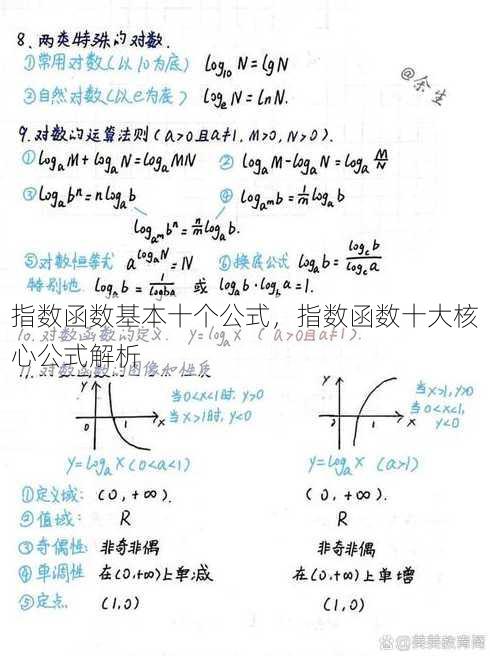 8、两类特殊的对数.
①常用对数(以10为底) log₁₀N=lgN
@余生
②自然对数(以e为底) logₑN=lnN.
9.对数的运算法则(a>0且a≠1, M>0, N>0).
①logₐM+logₐN=logₐMN ②logₐM-logₐN=logₐ M/N
③logₐbⁿ=nlogₐb ④logₐᵐb=1/m logₐb
logₐᵐbⁿ=n/m logₐb.
⑤对数恒等式 a^logₐN=N ⑥换底公式 logₐb= log_c b/log_c a
特别地 logₐb=1/log_b a 或 logₐb·log_b a=1.
指数函数基本十个公式，指数函数十大核
10.对数函数的定义. y=logₐx (a>0且a≠1).
心公式解析
11.对数函数的图像和性质
y 当0<x<1时, y>0
当x>1时, y<0
0 1 x
y 当x>1, y>0
当0<x<1, y<0
0 1 x
y=logₐx (0<a<1) y=logₐx (a>1)
①定义域: (0, +∞). (0, +∞).
②值域: R R
③奇偶性: 非奇非偶 非奇非偶
④单调性 在(0,+∞)上单减 在(0,+∞)上单增
⑤定点. (1,0) (1,0)
@美美教育阁